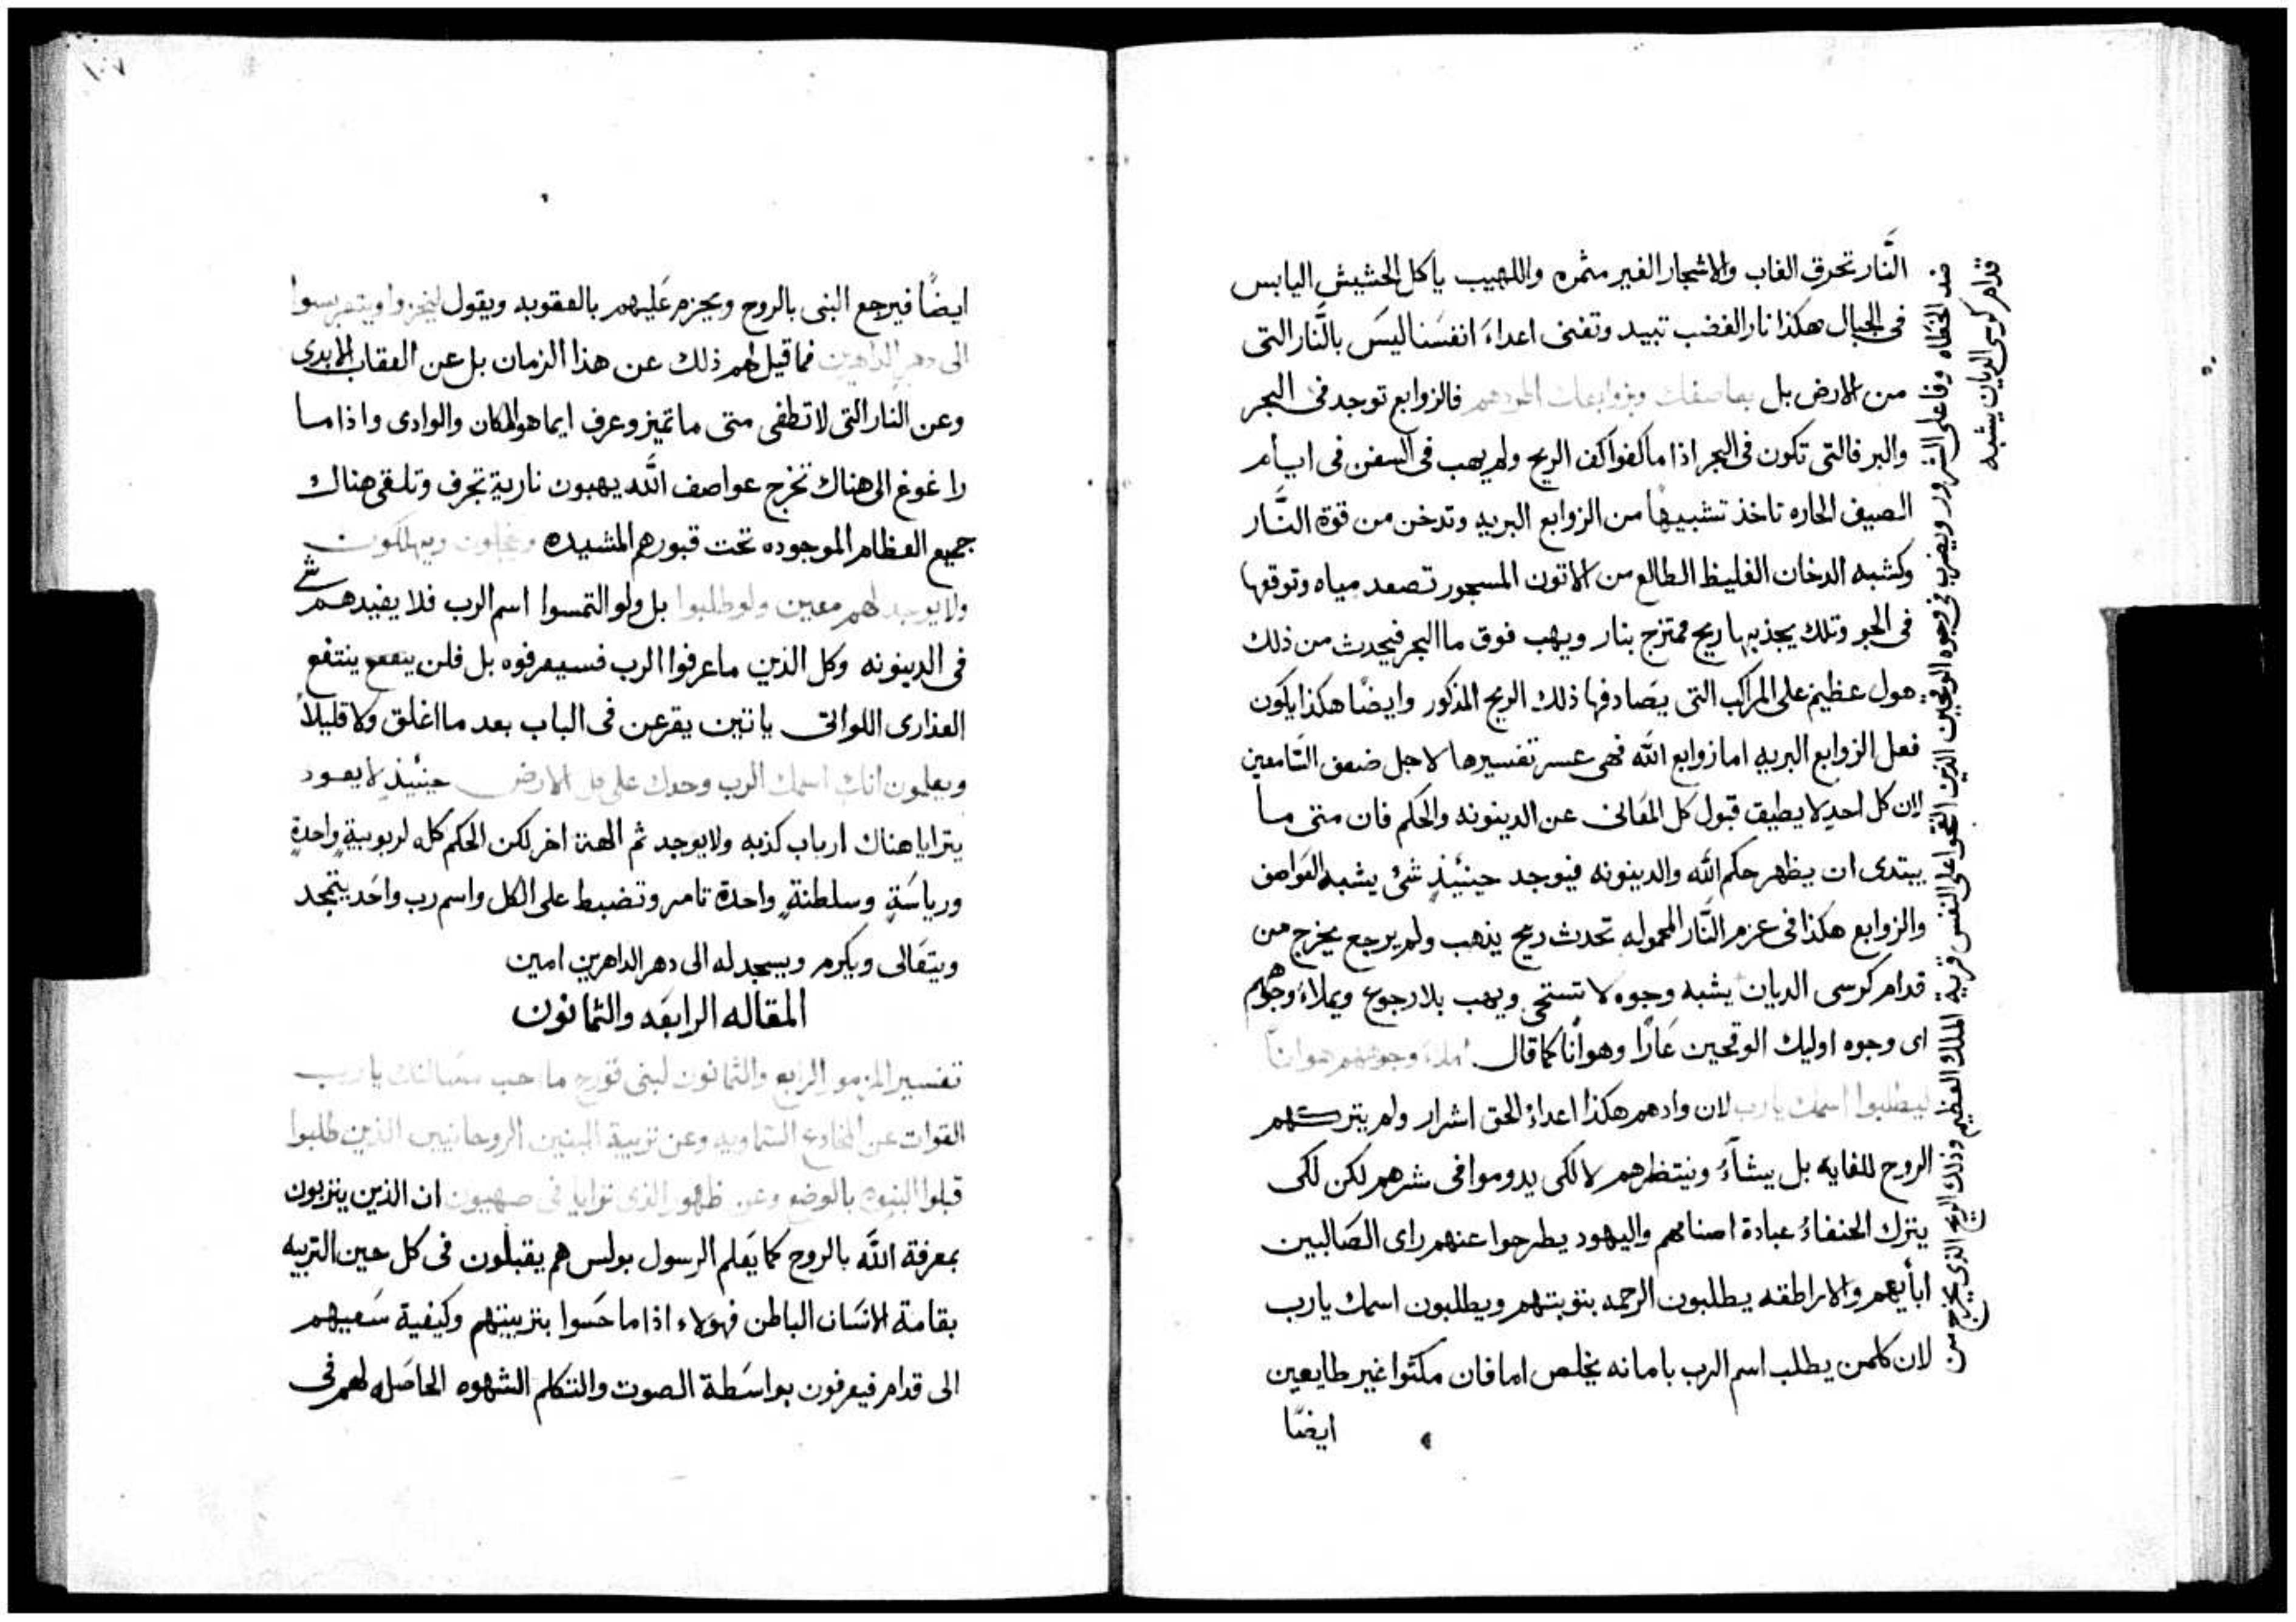 النَّار تحرق الغاب والاشجار الغير مثمره واللهيب يأكل الحشيش اليابس
فى الجبال هكذا نار الغضب تبيد وتفنى اعداءَ انفسَنا ليسَ بالنَّار التى
من الارض بل بعاصفك وبزوابعك فالزوابع توجد فى البحر
والبر فالتى تكون فى البحر اذا ما كفوا كف الريح ولم يهب فى السفن فى ايام
الصيف الحاره تاخذ تشبيهًا من الزوابع البريه وتدخن من قوة النَّار
وكشبه الدخان الغليظ الطالع من الاتون المسجور تصعد مياه وتوقفها
فى الجو وتلك يجذبها ريح ممتزج بنار ويهب فوق ما البحر فيحدث من ذلك
هول عظيم على المراكب التى يصَادفها ذلك الريح المذكور وايضًا هكذا يكون
فعل الزوابع البريه اما زوابع الله فهى عسر تفسيرها لاجل ضعف السَّامعين
لان كل احدٍ لا يطيق قبول كل المعَانى عن الدينونه والحكم فان متى ما
يبتدى ان يظهر حكم الله والدينونه فيوجد حينئذٍ شى يشبه العَواصف
والزوابع هكذا فى عزم النَّار المحموله تحدث ريح يذهب ولم يرجع يخرج من
قدام كرسى الديان يشبه وجوه لا تستحى ويهب بلا رجوع ويملاءُ وجوههم
اى وجوه اوليك الوقحين عَارًا وهوانًا كما قال املاءَ وجوههم هوانًا
ليطلبوا اسمك يارب لان وادهم هكذا اعداءُ الحق اشرار ولم يتركهم
الروح للغايه بل يشآءُ وينتظرهم لا لكى يدوموا فى شرهم لكن لكى
يترك الحنفاءُ عبادة اصنامهم واليهود يطرحوا عنهم راى الصَالبين
ابأيهم والاراطقه يطلبون الرحمه بتوبتهم ويطلبون اسمك يارب
لان كلمن يطلب اسم الرب بامانه يخلص اما فان مكثوا غير طايعين
ايضًا
ضد الخطاه وفاعلى الشرور ويضرب فى وجوه الوقحين الذين اتقحوا على النفس قرية الملك العظيم وذلك الريح الذى يخرج من
قدام كرسى الديان يشبه
١٠٧
ايضًا فيرجع النبى بالروح ويجزم عَليهم بالعقوبه ويقول ليخزوا
الى دهر الداهرين فما قيل لهم ذلك عن هذا الزمان بل عن العقاب الابدى
وعن النار التى لا تطفى متى ما تميز وعرف ايما هو المكان والوادى واذا ما
راغوغ الى هناك تخرج عواصف الله يهبون نارية تجرف وتلقى هناك
جميع العظام الموجوده تحت قبورهم المشيده ويخجلون ويهلكون
ولا يوجد لهم معين ولو طلبوا بل ولو التمسوا اسم الرب فلا يفيدهم شى
فى الدينونه وكل الذين ما عرفوا الرب فسيعرفوه بل فلن ينفع ينتفع
العذارى اللواتى ياتين يقرعن فى الباب بعد ما اغلق ولا قليلاً
ويعلمون انك اسمك الرب وحدك على كل الارض حينئذٍ لا يعود
يترايا هناك ارباب كذبه ولا يوجد ثم الهة اخر لكن الحكم كله لربوبيةٍ واحدةٍ
ورياسَةٍ وسلطنةٍ واحدة تامر وتضبط على الكل واسم رب واحد يتمجد
ويتعَالى ويكرم ويسجد له الى دهر الداهرين امين
المقاله الرابعَه والثمانون
تفسير المزمور الرابع والثمانون لبنى قورح ما احب مسَاكنك يا رب
القوات عن المخادع السَّماويه وعن تربية البنين الروحانيين الذين طلبوا
قبلوا البنوه بالوضع وعن ظهور الذى ترايا فى صهيون ان الذين يتربون
بمعرفة الله بالروح كما يَعلم الرسول بولس هم يقبلون فى كل حين التربيه
بقامة الانسَان الباطن فهولاء اذا ما حَسوا بتربيتهم وكيفية سَعيهم
الى قدام فيعرفون بواسَطة الصوت والتكلم الشهوه الحاصَله لهم فى